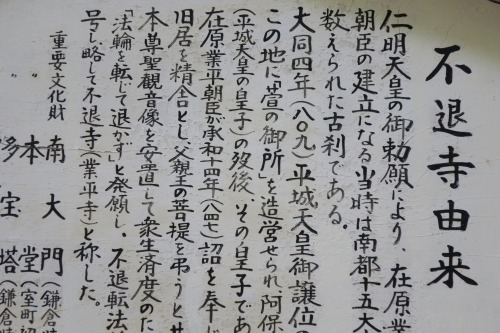 不退寺由来
仁明天皇の御勅願により、在原業
朝臣の建立になる当時は南都十五大
数えられた古刹である。
大同四年(八〇九)平城天皇御譲位
この地に「萱の御所」を造営せられ阿保
(平城天皇の皇子)の歿後、その皇子であ
在原業平朝臣が承和十四年(八四七)詔を奉じ
旧居を精舎とし父親王の菩提を弔うと
本尊聖観音像を安置して衆生済度の
「法輪を転じて退かず」と発願し、不退転法
号し略して不退寺(業平寺)と称した。
重要文化財 南大門(鎌倉
〃 本堂(室町
〃 多宝塔(鎌倉